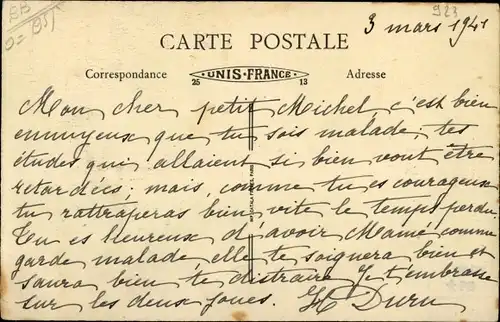 923
3 mars 1941
CARTE POSTALE
Correspondance
UNIS-FRANCE
Adresse
25
13
Mon cher petit Michel c'est bien
ennuyeux que tu sois malade; tes
études qui allaient si bien vont être
retardées; mais, comme tu es courageux
tu rattraperas bien vite le temps perdu
Tu es heureux d'avoir Mamé comme
garde malade, elle te soignera bien et
saura bien te distraire Je t'embrasse
sur les deux joues. H Duru